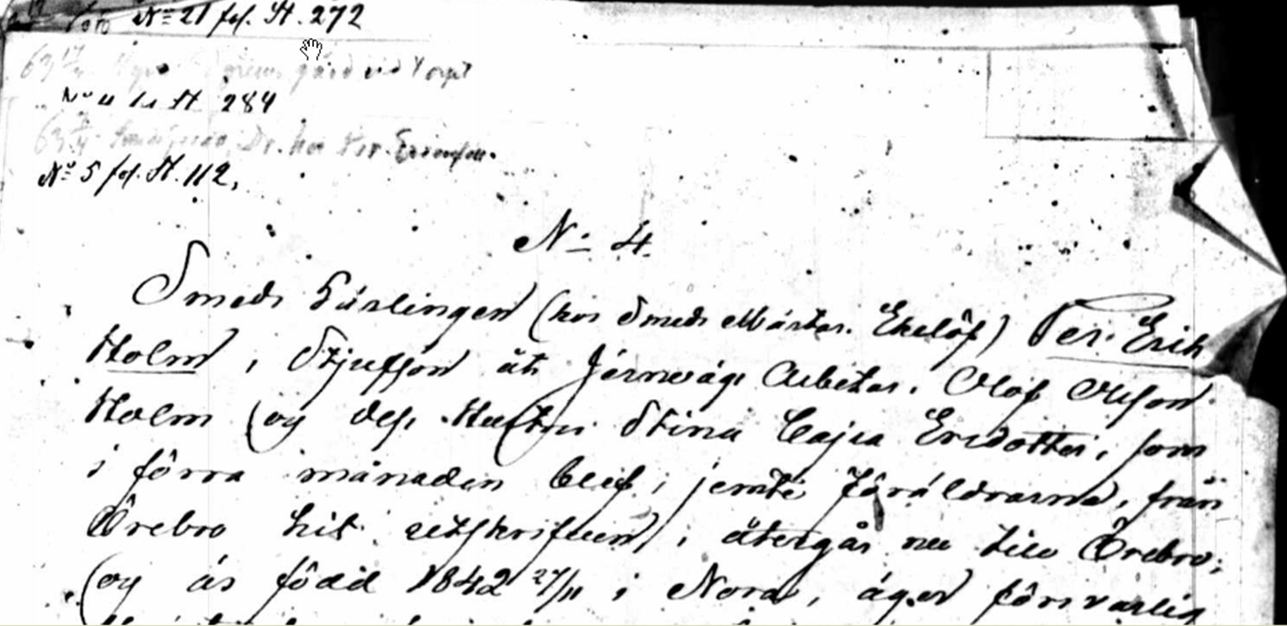 No 21 fol. St. 272
63 17/ gård vid Torget
No 11 St. 284
63 Dr. hos Fr.
No 5 fol. St. 112,
No 4.
Smeds Lärlingen (hos Smeds Mäster. Ekelöf) Per. Erik
Holm, Stjufson åt Järnvägs Arbetar. Olof Olsson
Holm (og des. Hustru Stina Cajsa Ersdotter, som
i förra månaden blef, jemte föräldrarne, från
Örebro hit utskrifven), återgår nu till Örebro,
(og är född 1842 27/11 i Nora, äger försvarlig